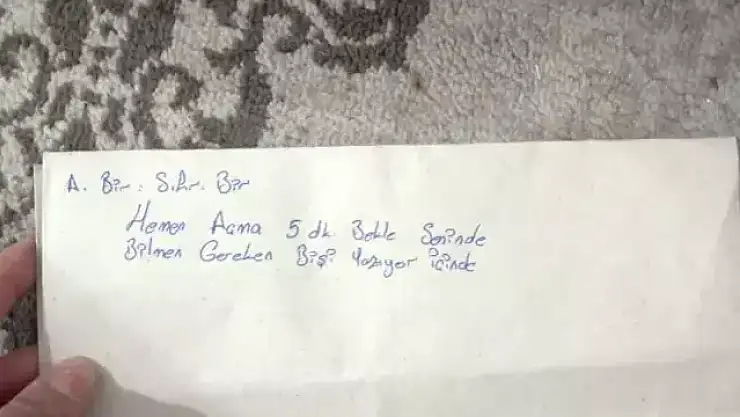 A. Bir. S.hr. Bir
Hemen Açma 5 dk Bekle Seninde
Bilmen Gereken Bişi Yazıyor içinde